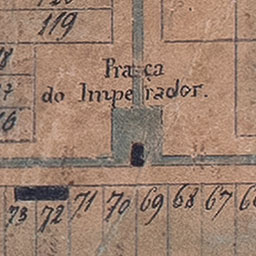 119
Praça
do Imperador.
73 72 71 70 69 68 67